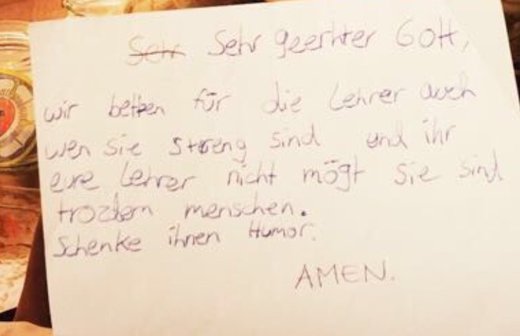 Sehr Sehr geerhter Gott,
wir betten für die Lehrer auch
wen sie streng sind und ihr
eure Lehrer nicht mögt sie sind
trozdem menschen.
Schenke ihnen Humor.
AMEN.